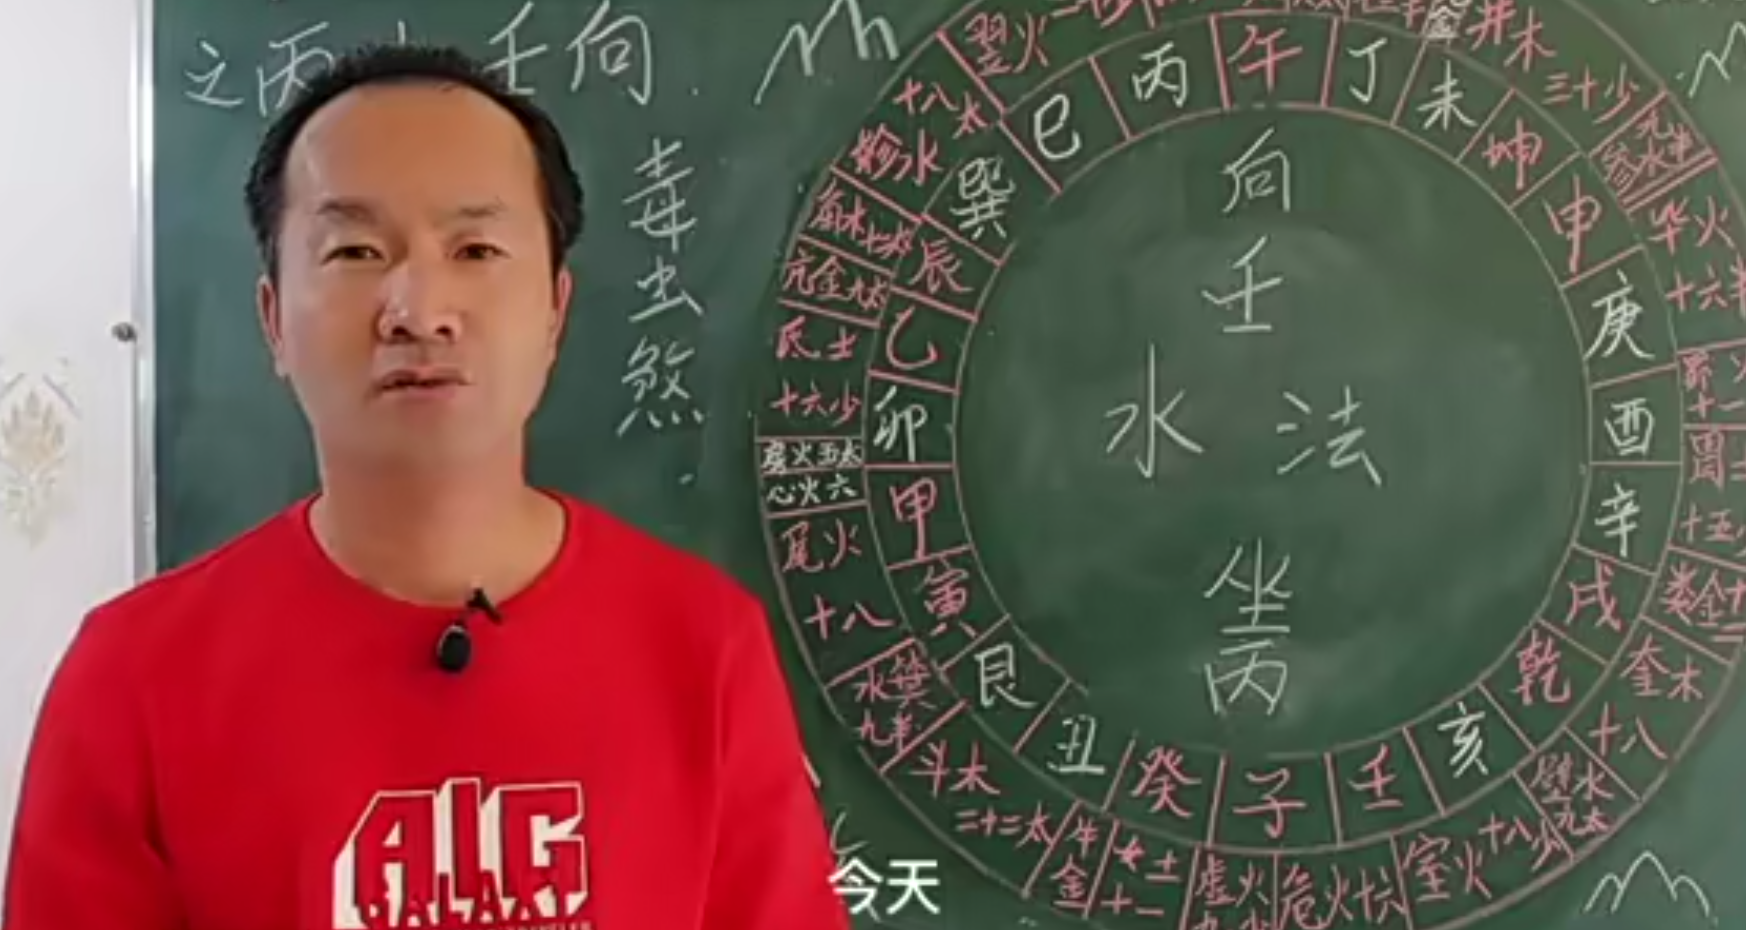 之丙 壬向
毒虫煞
向
壬
水法
坐
丙
巳 丙 午 丁 未 坤 申 庚 酉 辛 戌 乾 亥 壬 子 癸 丑 艮 寅 甲 卯 乙 辰 巽
翌火
十八太
轸水
角木
亢金九太
氐土
十六少
房火五太
心火六
尾火
十八
箕水
九半
斗木
二十二太
牛金
女土
十一
虚火
危火十六
室火
十八少
壁水
九太
奎木
十八
娄金
胃土
十五
十一
毕火
十六半
参水
井木
三十少
今天
AIG
GALAXY